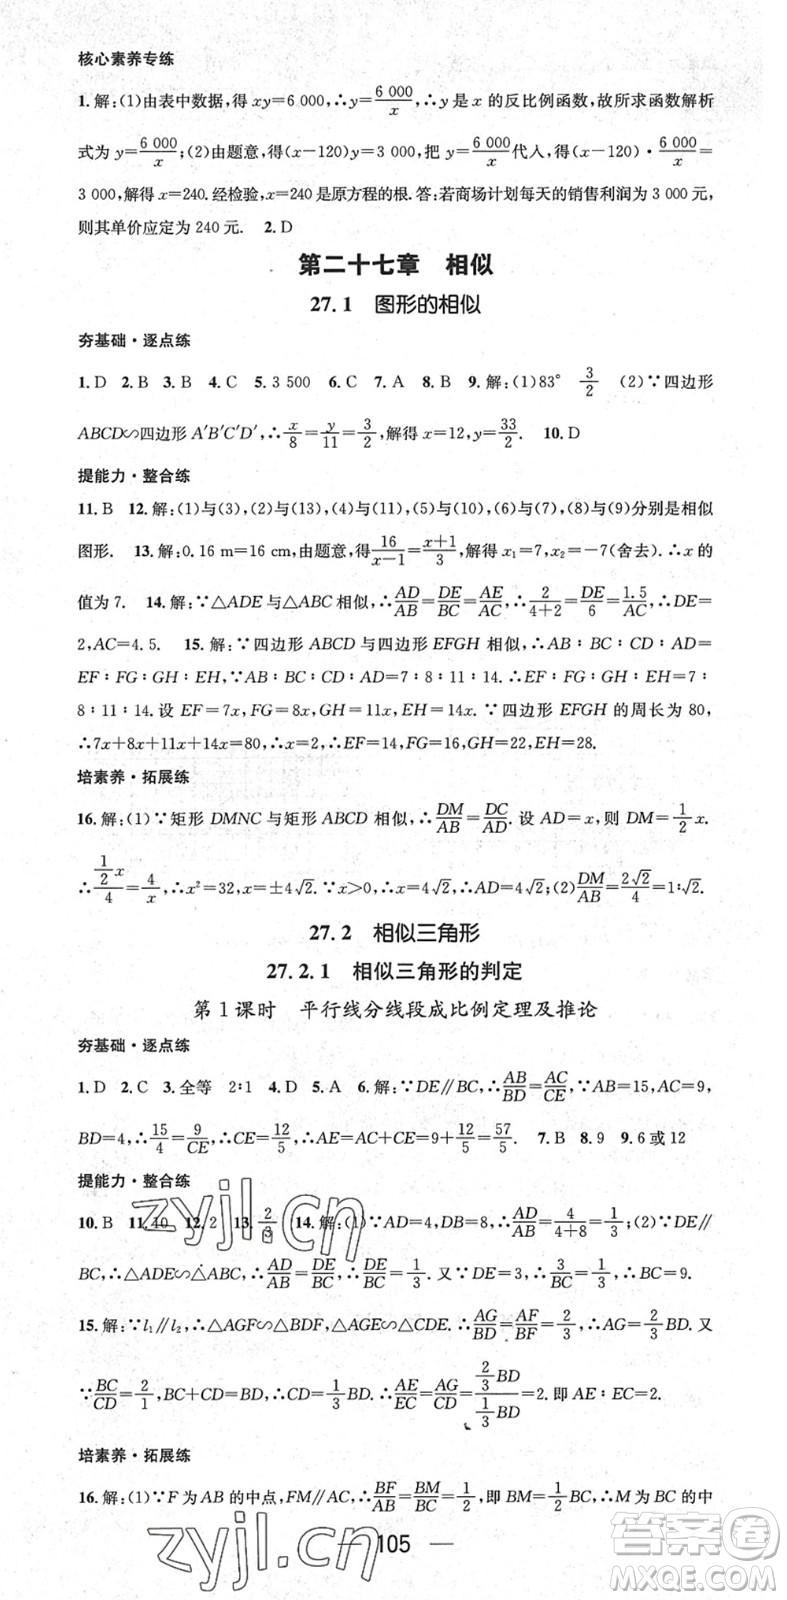 核心素养专练
1.解:(1)由表中数据,得 xy=6 000,∴y=6 000/x,∴y 是 x 的反比例函数,故所求函数解析
式为 y=6 000/x;(2)由题意,得(x-120)y=3 000,把 y=6 000/x代人,得(x-120)·6 000/x=
3 000,解得 x=240.经检验,x=240 是原方程的根.答:若商场计划每天的销售利润为 3 000 元,
则其单价应定为 240 元. 2.D
第二十七章 相似
27.1 图形的相似
夯基础·逐点练
1.D 2.B 3.B 4.C 5.3 500 6.C 7.A 8.B 9.解:(1)83° 3/2 (2)∵四边形
ABCD∽四边形 A′B′C′D′,∴x/8=y/11=3/2,解得 x=12,y=33/2. 10.D
提能力·整合练
11.B 12.解:(1)与(3),(2)与(13),(4)与(11),(5)与(10),(6)与(7),(8)与(9)分别是相似
图形. 13.解:0.16 m=16 cm,由题意,得16/(x-1)=(x+1)/3,解得 x₁=7,x₂=-7(舍去).∴x 的
值为 7. 14.解:∵△ADE 与△ABC 相似,∴AD/AB=DE/BC=AE/AC,∴2/(4+2)=DE/6=1.5/AC,∴DE=
2,AC=4.5. 15.解:∵四边形 ABCD 与四边形 EFGH 相似,∴AB∶BC∶CD∶AD=
EF∶FG∶GH∶EH,∵AB∶BC∶CD∶AD=7∶8∶11∶14,∴EF∶FG∶GH∶EH=7∶
8∶11∶14.设 EF=7x,FG=8x,GH=11x,EH=14x.∵四边形 EFGH 的周长为 80,
∴7x+8x+11x+14x=80,∴x=2,∴EF=14,FG=16,GH=22,EH=28.
培素养·拓展练
16.解:(1)∵矩形 DMNC 与矩形 ABCD 相似,∴DM/AB=DC/AD.设 AD=x,则 DM=1/2 x.
∴(1/2 x)/4=4/x,∴x²=32,x=±4√2.∵x>0,∴x=4√2,∴AD=4√2;(2)DM/AB=2√2/4=1∶√2.
27.2 相似三角形
27.2.1 相似三角形的判定
第1课时 平行线分线段成比例定理及推论
夯基础·逐点练
1.D 2.C 3.全等 2∶1 4.D 5.A 6.解:∵DE∥BC,∴AB/BD=AC/CE.∵AB=15,AC=9,
BD=4,∴15/4=9/CE,∴CE=12/5,∴AE=AC+CE=9+12/5=57/5. 7.B 8.9 9.6 或 12
提能力·整合练
10.B 11.40 12.2 13.2/3 14.解:(1)∵AD=4,DB=8,∴AD/AB=4/(4+8)=1/3;(2)∵DE∥
BC,∴△ADE∽△ABC,∴AD/AB=DE/BC,∴DE/BC=1/3.又∵DE=3,∴3/BC=1/3,∴BC=9.
15.解:∵l₁∥l₂,∴△AGF∽△BDF,△AGE∽△CDE.∴AG/BD=AF/BF=2/3,∴AG=2/3 BD.又
∵BC/CD=2/1,BC+CD=BD,∴CD=1/3 BD.∴AE/EC=AG/CD=(2/3 BD)/(1/3 BD)=2.即 AE∶EC=2.
培素养·拓展练
16.解:(1)∵F 为 AB 的中点,FM∥AC,∴BF/AB=BM/BC=1/2,即 BM=1/2 BC,∴M 为 BC 的中
— 105 —
zyjl.cn
zyjl.cn
答案圈
MXQE.COM